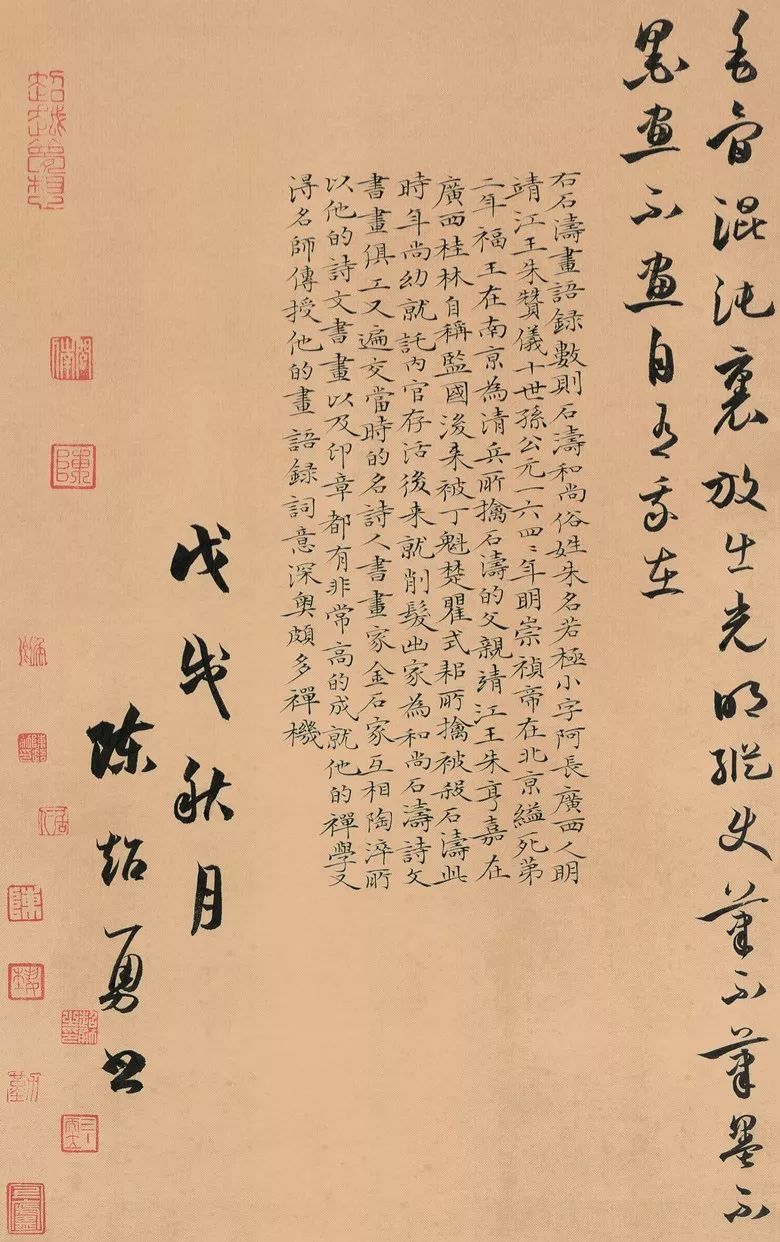 毛骨混沌裏放出光明縱使筆不筆墨不
墨畫不畫自有我在
右石濤畫語録數則石濤和尚俗姓朱名若極小字阿長廣西人明
靖江王朱贊儀十世孫公元一六四〻年明崇禎帝在北京縊死第
二年福王在南京為清兵所擒石濤的父親靖江王朱亨嘉在
廣西桂林自稱監國後来被丁魁楚瞿式耜所擒被殺石濤此
時年尚幼就託内官存活後来就削髮出家為和尚石濤詩文
書畫俱工又遍交當時的名詩人書畫家金石家互相陶淬所
以他的詩文書畫以及印章都有非常高的成就他的禪學又
得名師傳授他的畫語録詞意深奥頗多禪機
戊戌秋月
陈超勇书
陳
陳